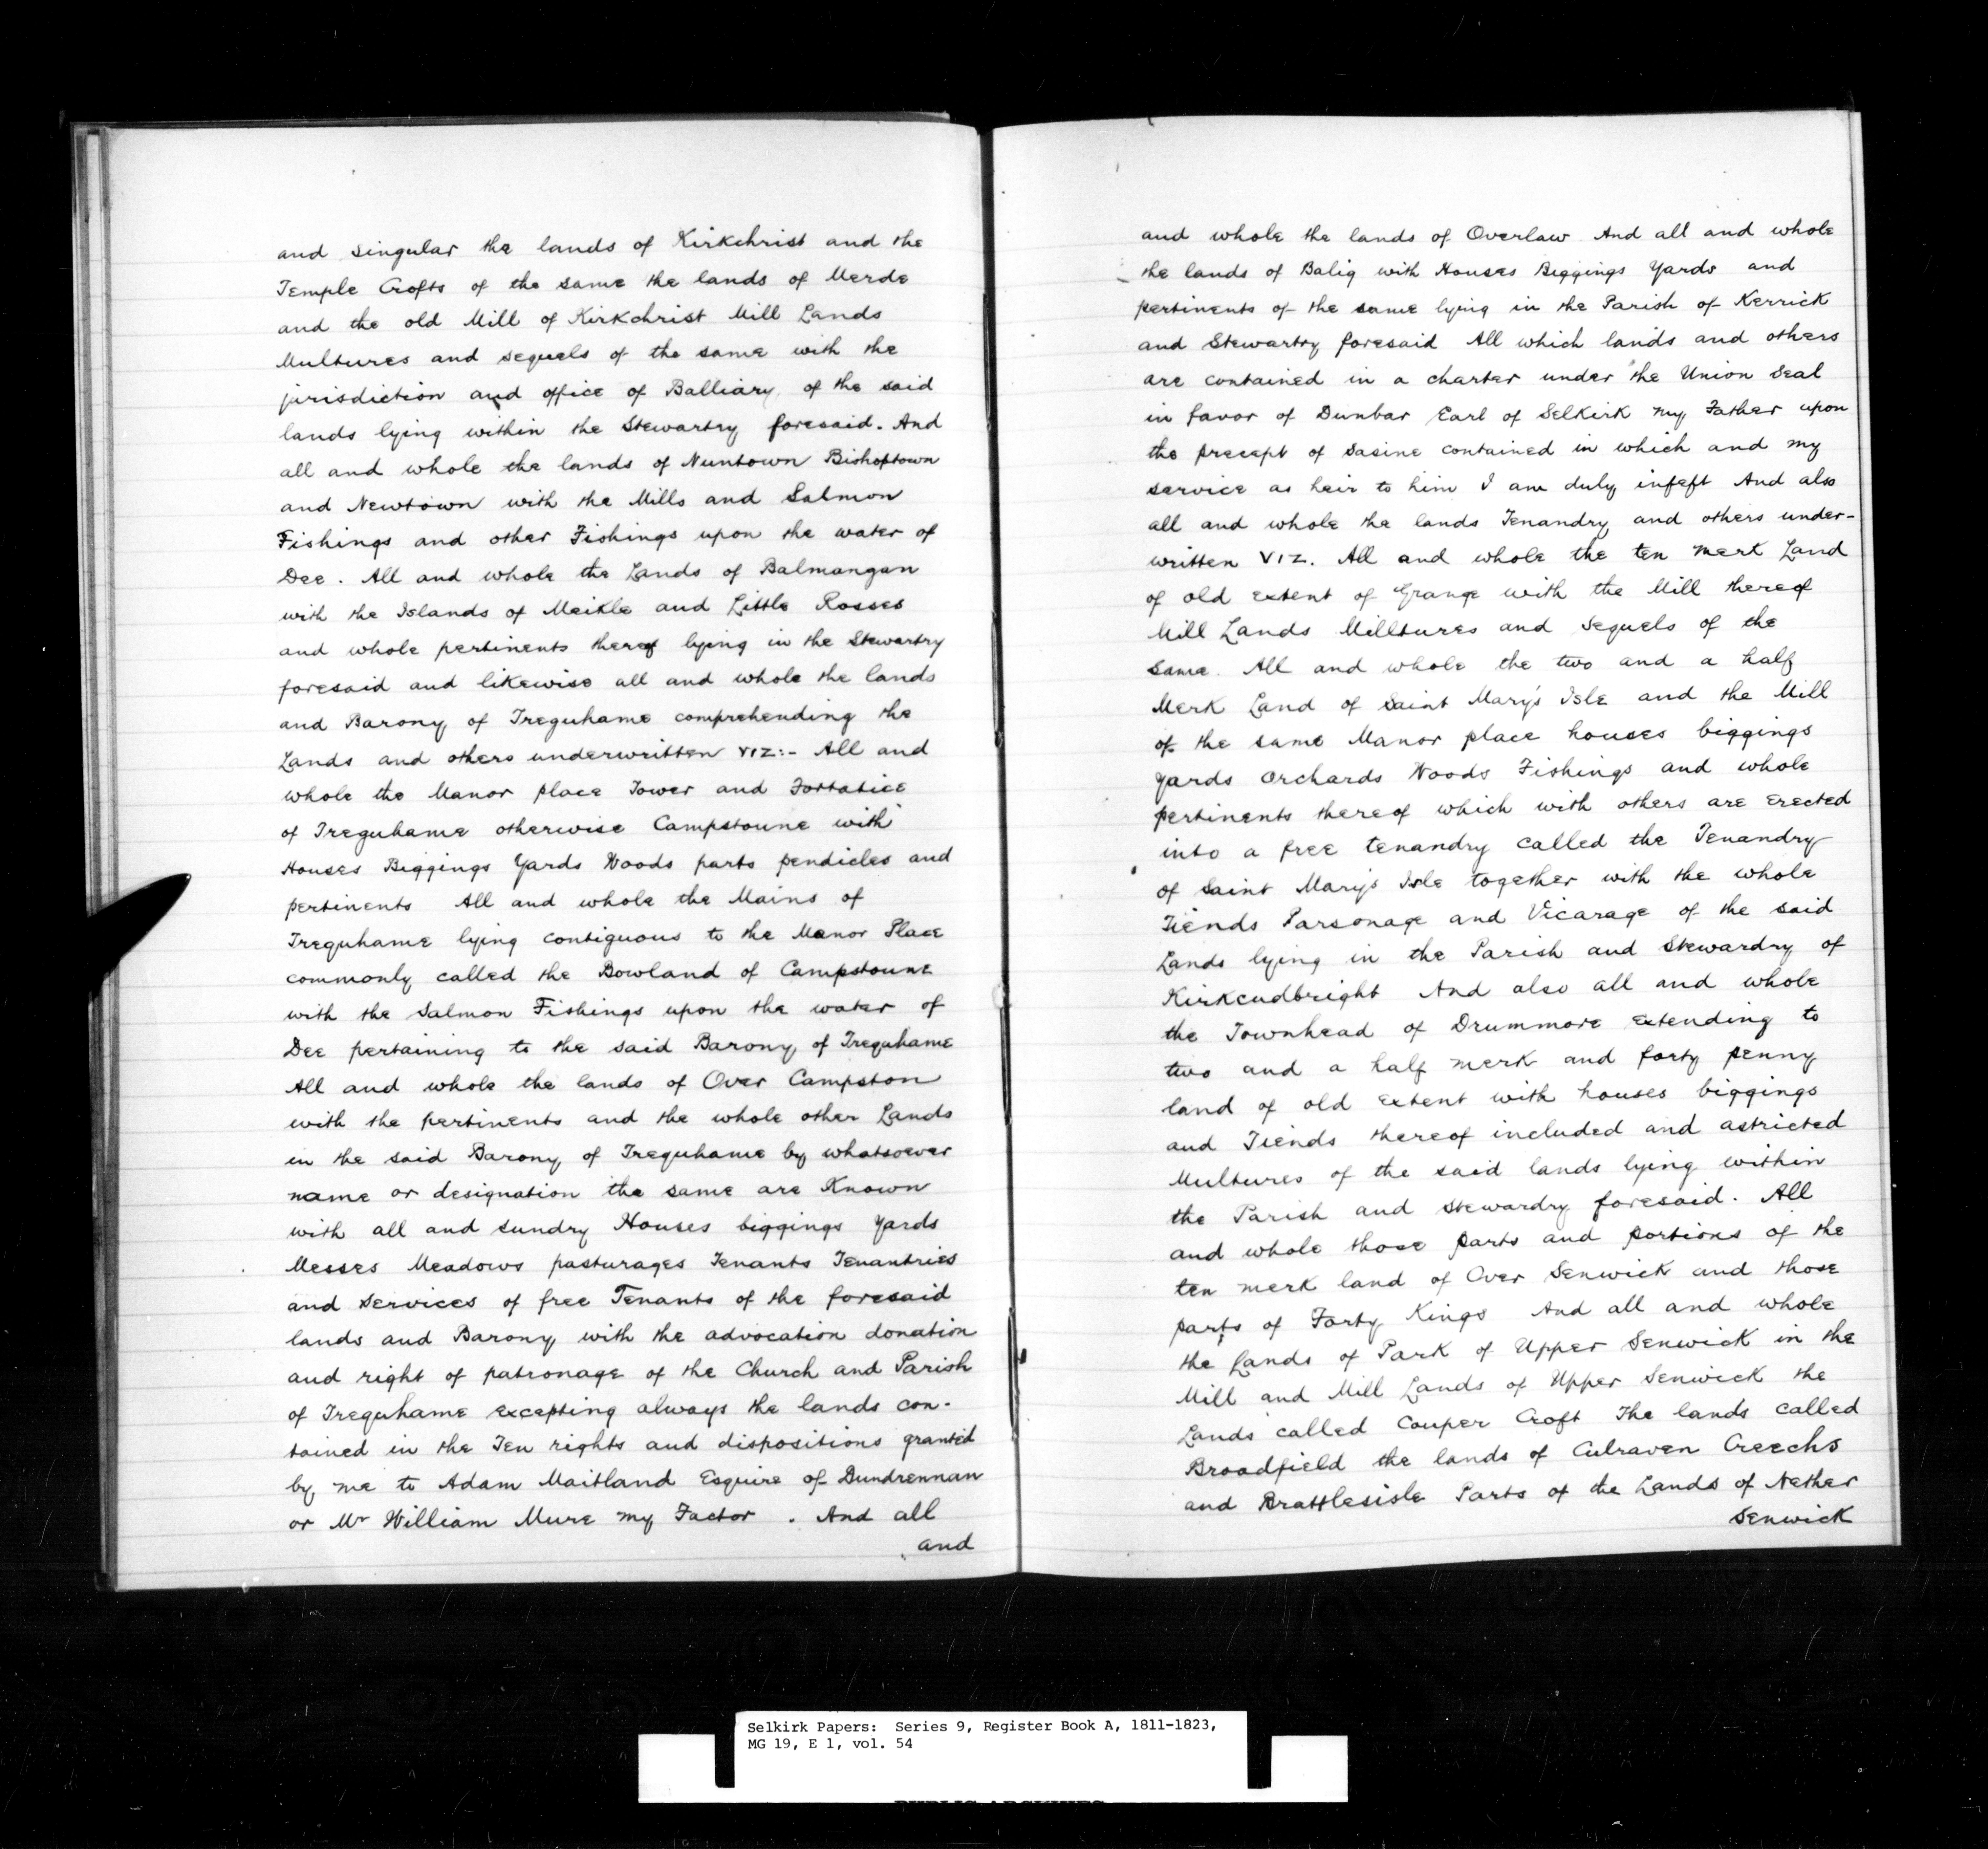 and singular the lands of Kirkchrist and the
Temple Crofts of the same the lands of Merde
and the old Mill of Kirkchrist Mill Lands
Multures and sequels of the same with the
jirisdiction and office of Balliary of the said
lands lying within the Stewartry foresaid. And
all and whole the lands of Nuntown Bishoptown
and Newtown with the Mills and Salmon
Fishings and other Fishings upon the water of
Dee. All and whole the Lands of Balmangan
with the Islands of Meikle and Little Rosses
and whole pertinents thereof lying in the Stewartry
foresaid and likewise all and whole the lands
and Barony of Treguhame comprehending the
Lands and others underwritten VIZ:- All and
whole the Manor place Tower and Fortalice
of Treguhame otherwise Campstoune with
Houses Biggings Yards Woods parts pendicles and
pertinents All and whole the Mains of
Treguhame lying contiguous to the Manor Place
commonly called the Bowland of Campstoune
with the Salmon Fishings upon the water of
Dee pertaining to the said Barony of Treguhame
All and whole the lands of Over Campston
with the pertinents and the whole other Lands
in the said Barony of Treguhame by whatsoever
name or designation the same are Known
with all and sundry Houses biggings Yards
Messes Meadows pasturages Tenants Tenantries
and Services of free Tenants of the foresaid
lands and Barony with the advocation donation
and right of patronage of the Church and Parish
of Treguhame excepting always the lands con-
tained in the Ten rights and dispositions granted
by me to Adam Maitland Esquire of Dundrennan
or Mr William Mure my Factor. And all
and
and whole the lands of Overlaw And all and whole
the lands of Balig with Houses Biggings Yards and
pertinents of the same lying in the Parish of Kerrick
and Stewartry foresaid All which lands and others
are contained in a charter under the Union Seal
in favor of Dunbar Earl of Selkirk my Father upon
the precept of Sasine contained in which and my
service as heir to him I am duly infeft And also
all and whole the lands Tenandry and others under-
written VIZ. All and whole the ten merk Land
of old extent of Grange with the Mill thereof
Mill Lands Milltures and Sequels of the
same. All and whole the two and a half
Merk Land of Saint Mary's Isle and the Mill
of the same Manor place houses biggings
yards Orchards Woods Fishings and whole
pertinents thereof which with others are erected
into a free tenandry called the Tenandry
of Saint Mary's Isle together with the whole
Tiends Parsonage and Vicarage of the said
Lands lying in the Parish and Stewardry of
Kirkcudbright And also all and whole
the Townhead of Drummore extending to
two and a half merk and forty penny
land of old extent with houses biggings
and Tiends thereof included and astricted
Multures of the said lands lying within
the Parish and Stewardry foresaid. All
and whole those parts and portions of the
ten merk land of Over Senwick and those
parts of Forty Kings And all and whole
the Lands of Park of Upper Senwick in the
Mill and Mill Lands of Upper Senwick the
Lands called Couper Croft The lands called
Broadfield the lands of Culraven Creechs
and Brattlesisle Parts of the Lands of Nether
Senwick
Selkirk Papers: Series 9, Register Book A, 1811-1823,
MG 19, E 1, vol. 54